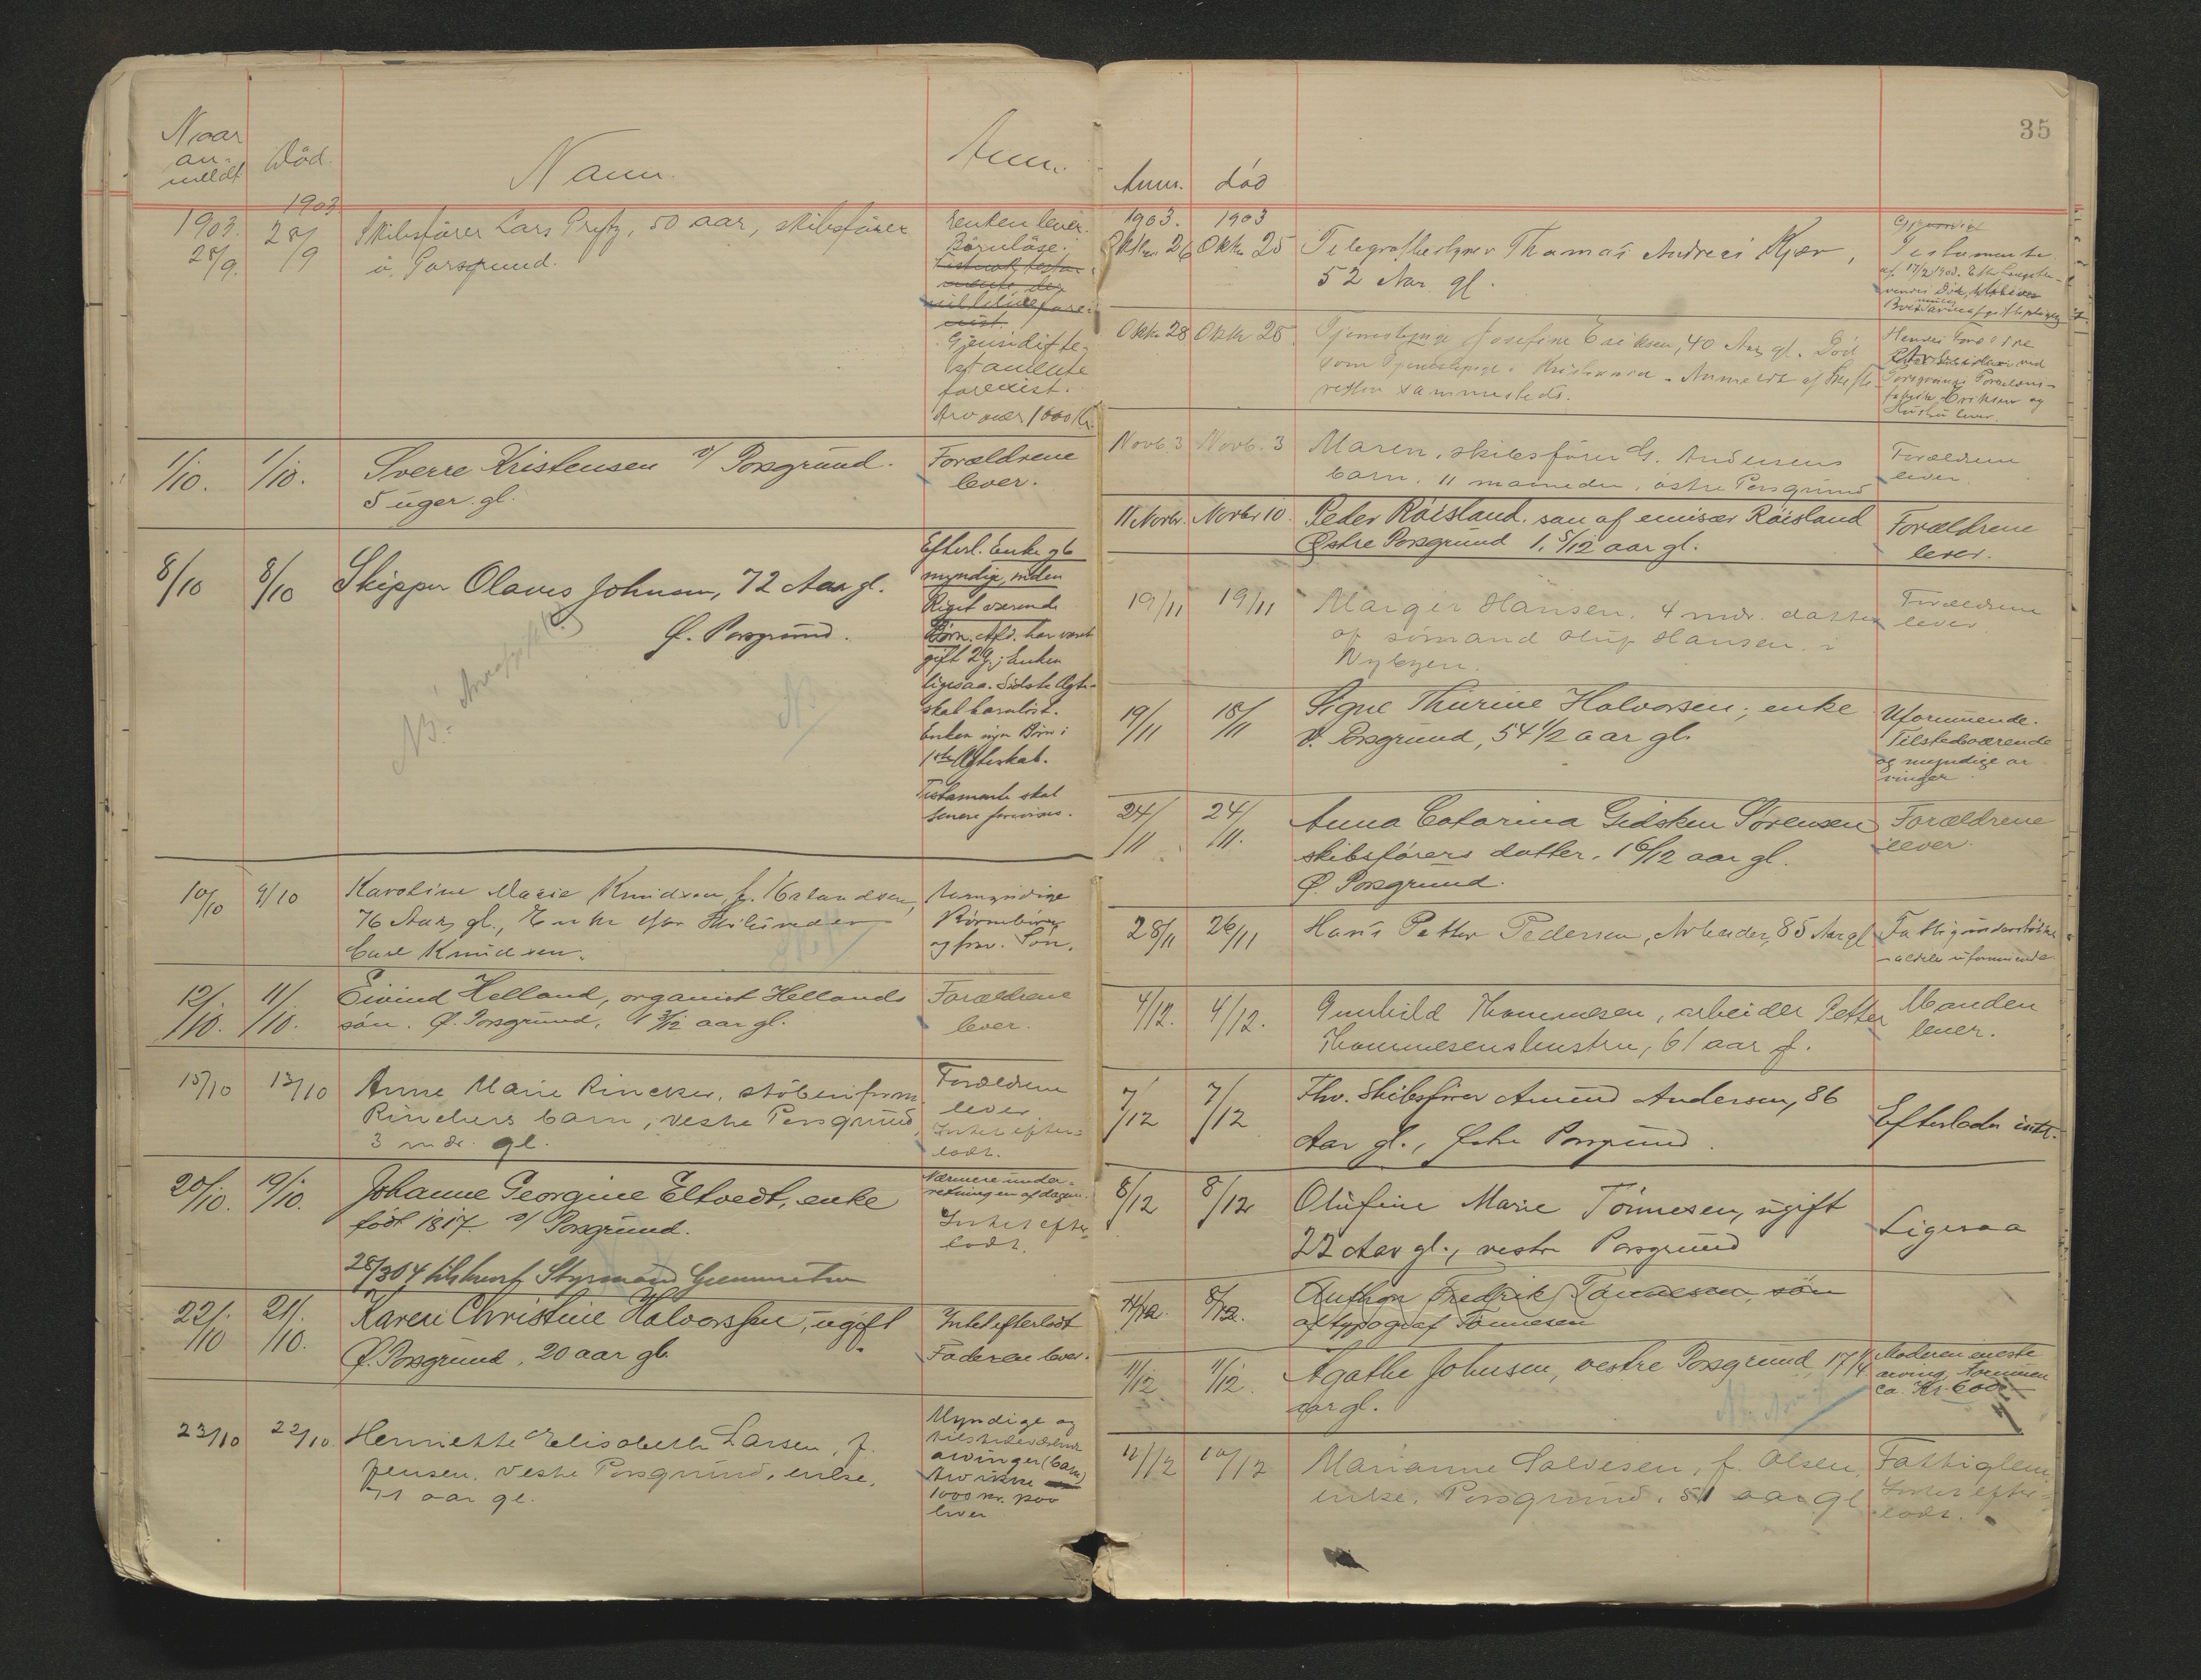 Naar
an-
meldt
Död.
Navn.
Anm.
1903.
28/9.
1903
28/9
Skibsfører Lars Preftz, 50 aar, skibsfører
ö. Porsgrund.
Enken lever.
Börnlöse.
Gjensidig te-
stamente
forevist.
Arv over 1000 Kr.
1/10.
1/10.
Sverre Kristensen v/ Porsgrund.
5 uger gl.
Forældrene
lever.
8/10
8/10
Skipper Olaves Johnsen, 72 Aar gl.
Ø. Porsgrund.
NB.
Efterl. Enke og
myndige, inden
Riget værende
Børn. Afd. har været
gift 2 G.; Enken
ligesaa. Sidste Ægte-
skab barnløst.
Enken ingen Børn i
1ste Ægteskab.
Testamente skal
senere forevises.
10/10
9/10
Karoline Marie Knudsen, f.
76 Aar gl., Enke efter
Carl Knudsen.
Umyndige
Börnebörn
og frav. Sön.
12/10.
11/10.
Eivind Helland, organist Hellands
søn. Ø. Porsgrund, 1 3/12 aar gl.
Forældrene
lever.
15/10
13/10
Anne Marie Rincker, støberiform.
Rinckers barn, vestre Porsgrund,
3 mdr. gl.
Forældrene
lever.
Intet efter-
ladt.
20/10.
19/10.
Johanne Georgine Eltvedt, enke
født 1817. v/ Porsgrund.
28/3 04 tilskrevet Styrmand
Nærmere under-
retning en af dagene.
Intet efter-
ladt.
22/10
21/10.
Karen Christine Halvorssen, ugift
Ø. Porsgrund, 20 aar gl.
Intet efterladt
Faderen lever.
23/10
22/10
Henriette Elisabeth Larsen, f.
Jensen. Vestre Porsgrund, enke,
71 aar gl.
Myndige og
tilstedeværende
arvinger (barn)
Arv ikke
1000 kr.
35
Anm.
død
1903.
Oktbr. 26
1903
Oktbr. 25
Telegrafbestyrer Thomas Andreas Kjær,
52 Aar gl.
Gjensidigt
Testamente
af 17/2 1903. Efter Længstle-
vendes Död
Oktbr 28
Oktbr 25
Tjenestepige Josefine Eriksen, 40 Aar gl. Död
som Tjenestepige i Kristiania. Anmeldt af Skifte-
retten sammesteds.
Hendes Forældre
ved
Porsgrunds Porcelæns-
fabrik Eriksen og
Hustru lever.
Novb. 3
Novb. 3
Maren, skibsfører G. Andersens
barn, 11 maaneder, østre Porsgrund
Forældrene
lever
11 Novbr.
Novbr 10.
Peder Röisland. søn af emisær Röisland
Østre Porsgrund 1. 5/12 aar gl.
Forældrene
lever.
19/11
19/11
Margit Hansen, 4 mdr. datter
af sømand Oluf Hansen, i
Nybyen.
Forældrene
lever
19/11
18/11
Signe Thurine Halvorsen; enke
V. Porsgrund, 54 1/2 aar gl.
Uformuende.
Tilstedeværende
og myndige ar-
vinger.
24/11
24/11.
Anna Catarina Gidsken Sørensen
skibsførers datter, 1 6/12 aar gl.
Ø. Porsgrund.
Forældrene
lever.
28/11
26/11
Hans Petter Pedersen, Arbeider, 85 Aar gl
Fattigunderstöttet
- aldeles uformuende
4/12.
4/12.
Gunhild Thommesen, arbeider Petter
Thommesens hustru, 61 aar g.
Manden
lever.
7/12
7/12
Fhv. Skibsfører Amund Andersen, 86
Aar gl., Østre Porsgrund.
Efterlader intet.
8/12
8/12
Olufine Marie Tönnesen, ugift
22 Aar gl., vestre Porsgrund
Ligesaa
11/12.
8/12.
Anthon Fredrik Tönnesen, søn
af typograf Tönnesen
11/12
11/12.
Agathe Johnsen, vestre Porsgrund, 17 1/4
aar gl.
Moderen eneste
arving, formuen
ca. Kr. 600
12/12
10/12
Marianne Salvesen, f. Olsen,
enke, Porsgrund, 51 aar gl
Fattiglem.
Intet efter-
ladt.